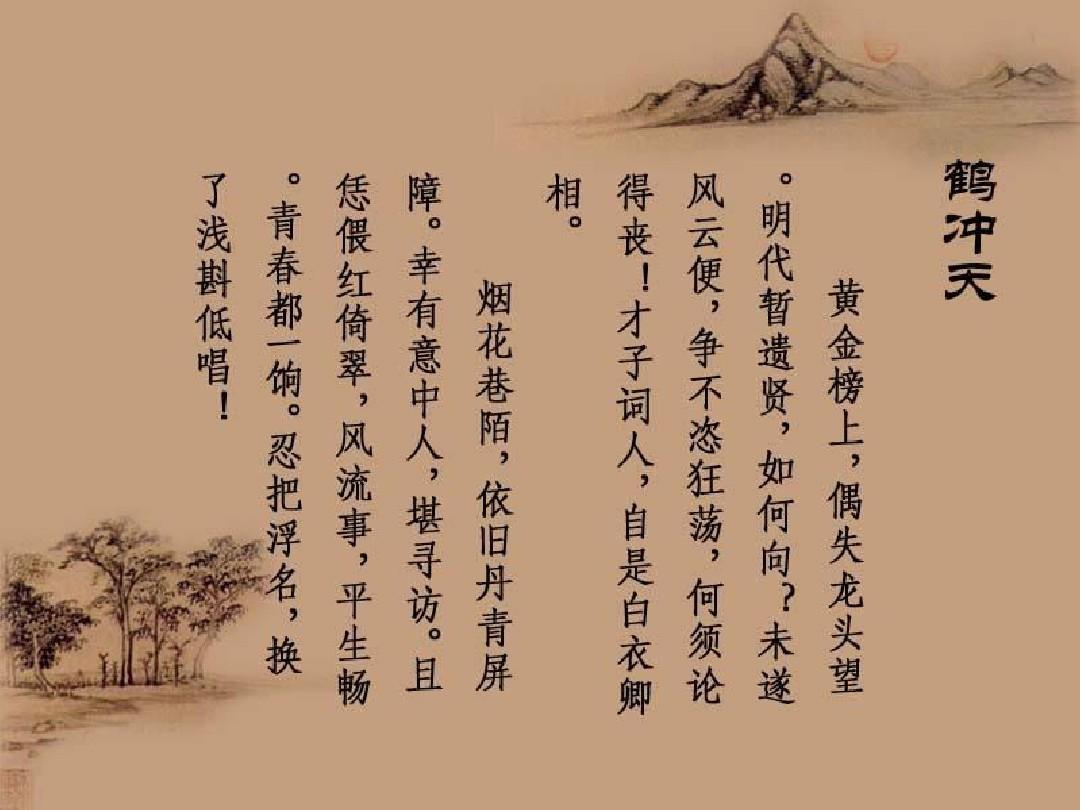 鹤冲天
黄金榜上，偶失龙头望
。明代暂遗贤，如何向？未遂
风云便，争不恣狂荡，何须论
得丧！才子词人，自是白衣卿
相。
烟花巷陌，依旧丹青屏
障。幸有意中人，堪寻访。且
恁偎红倚翠，风流事，平生畅
。青春都一饷。忍把浮名，换
了浅斟低唱！